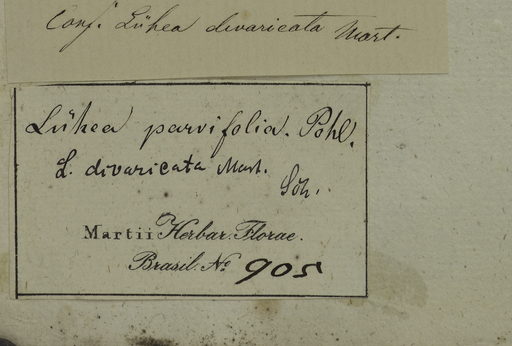 Conf. Lühea divaricata Mart.
Lühea parvifolia. Pohl.
L. divaricata Mart.
Martii Herbar. Florae.
Brasil. No 905